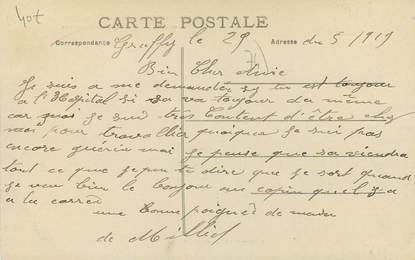 Got
CARTE POSTALE
Correspondance Adresse
Graffy le 29 du 5 / 1919
Bien Cher Amie
Je suis a me demander sy tu est toujour
a l'Hopital si sa va toujour du même
car quoi je suis très content d'être chez
moi pour travallier quoique je sui pas
encore guériu mai je pense que sa viendra
tout ce que je peu te dire que je sort quand
je veu bien le bonjour au copin quel y a
a la carré
une bonne poigned de main
de Milliof